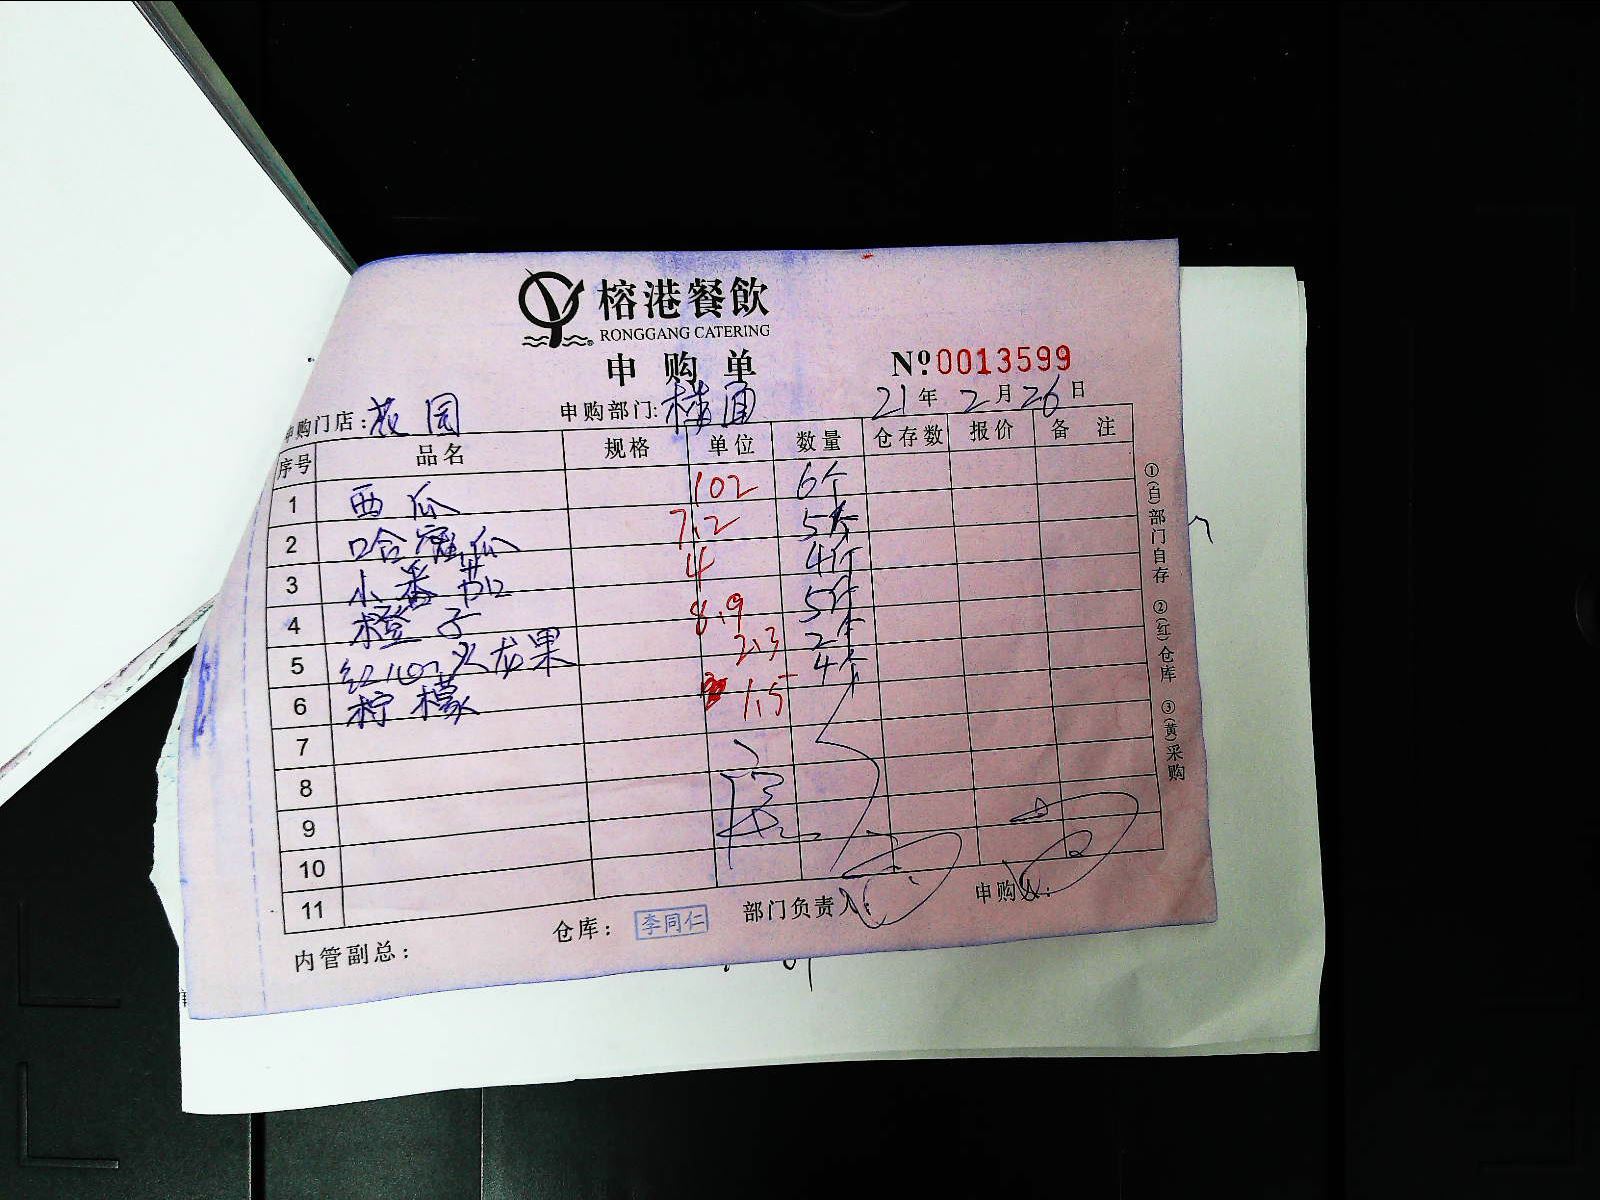 榕港餐飲
RONGGANG CATERING
申购单 Nº 0013599
申购门店:花园 申购部门:楼面 21年2月26日
序号 品名 规格 单位 数量 仓存数 报价 备注
1 西瓜 102 6个
2 哈密瓜 7.2 5个
3 小番茄 4 4斤
4 橙子 8.9 5斤
5 红心火龙果 2.3 2个
6 柠檬 1.5 4个
7
8
9
10
11
内管副总: 仓库: 李同仁 部门负责人: 申购人:
①(白)部门自存 ②(红)仓库 ③(黄)采购